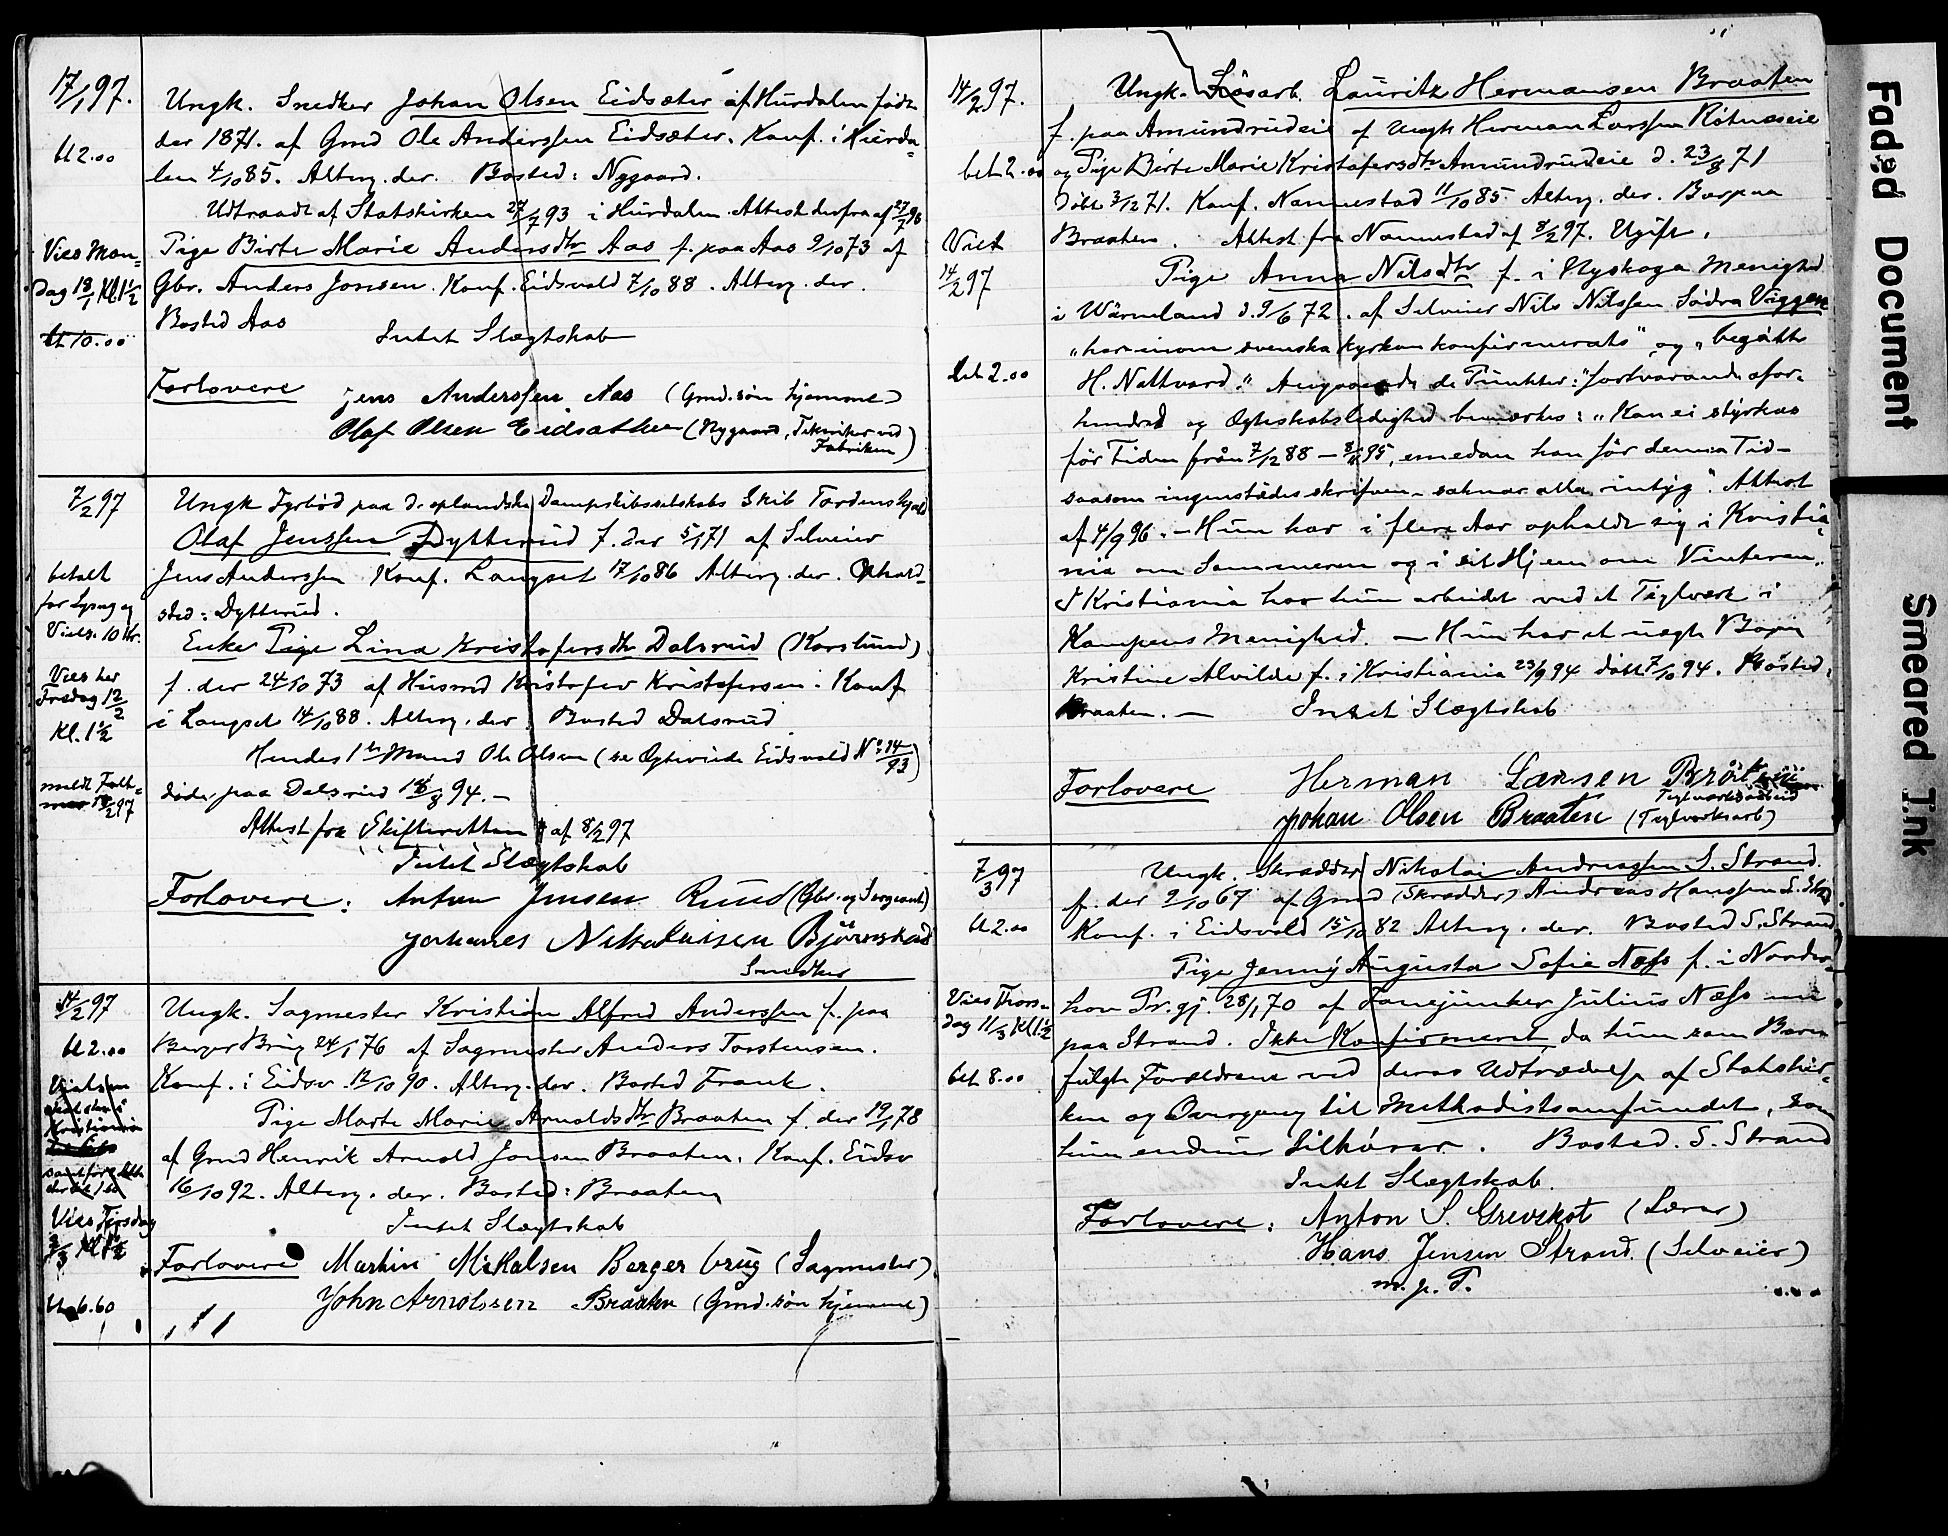 17/1 97.
bt 2.00
Vies Man-
dag 18/1 Kl 1 1/2
bt 10.00
Ungk. Snedker Johan Olsen Eidsæter af Hurdalen født
der 1871. af Gmd Ole Anderssen Eidsæter. Konf. i Hurda-
len 4/10 85. Alterg. der. Bosted: Nygaard.
Udtraadt af Statskirken 27/7 93 i Hurdalen. Attest derfra af 27/7 96
Pige Birte Marie Andersdtr Aas f. paa Aas 9/10 73 af
Gbr. Anders Jonsen. Konf. Eidsvold 7/10 88. Alterg. der.
Bosted Aas
Intet Slægtskab
Forlovere
Jens Anderssen Aas (Gmd.søn hjemme)
Olaf Olsen Eidsæther (Nygaard, Tekniker ved
Fabriken)
7/2 97
betalt
for Lysng og
Viels. 10 Kr.
Vies her
Fredag 12/2
Kl. 1 1/2
Ungk Fyrbød paa d. oplandske Dampskibsselskabs Skib Tordenskjold
Olaf Jenssen Dytterud f. der 5/1 71 af Selveier
Jens Anderssen Konf. Langset 17/10 86 Alterg. der. Ophold-
sted: Dytterud.
Enke Pige Lina Kristofersdtr Dalsrud (Korslund)
f. der 24/10 73 af Husmd Kristofer Kristofersen. Konf
i Langset 14/10 88. Alterg. der. Bosted Dalsrud
Hendes 1ste Mand Ole Olsen (se Ægtevirde Eidsvold No 14/93)
døde paa Dalsrud 94. —
Attest fra Skifteretten af 8/2 97
Intet Slægtskab
Forlovere: Anton Jensen Ruud (Gbr. og Sergeant)
Johanes Nikolaisen Bjørnstad
Snedker
14/2 97
bt 2.00
Vies Tirsdag
2/3 Kl 1 1/2
bt 6.60
Ungk. Sagmester Kristian Alfred Anderssen f. paa
Berger Brug 24/1 76 af Sagmester Anders Torstensen.
Konf. i Eidsv. 12/10 90. Alterg. der. Bosted Frank.
Pige Marte Marie Arnoldsdtr Braaten f. der 19/1 78
af Gmd Henrik Arnold Jonsen Braaten. Konf. Eidsv
16/10 92. Alterg. der. Bosted: Braaten
Intet Slægtskab
Forlovere Martin Mikalsen Berger brug (Sagmester)
John Arnolssen Braaten (Gmd. søn hjemme)
14/2 97.
bet 2.00
Viet
14/2 97
bet 2.00
Ungk. Løsarb. Lauritz Hermansen Braaten
f. paa Amundrudeie af Ungk Herman Larssen Røtneseie
og Pige Birte Marie Kristofersdtr Amundrudeie d. 23/8 71
døbt 3/12 71. Konf. Nannestad 11/10 85. Alterg. der. Bor paa
Braaten. Attest fra Nannestad af 8/2 97. Ugift.
Pige Anna Nilsdtr f. i Nyskoga Menighed
i Wärmeland d. 9/6 72. af Selveier Nils Nilssen Södra Viggen
"har inom svenska kyrkan konfirmerats" og "begått
H. Nattvard." Angaaende de Punkter: "fortvarande ofor-
hindrad og Ægteskabsledighed bemærkes: "Kan ei styrkas
för Tiden från 7/12 88 — 95, emedan hon för denna Tid —
saasom ingenstædes skrifven — saknar alla intyg". Attest
af 4/9 96. — Hun har i flere Aar opholdt sig i Kristia-
nia om Sommeren og i sit Hjem om Vinteren.
I Kristiania har hun arbeidet ved et Teglværk i
Kampens Menighed. — Hun har et uægte Barn
Kristine Alvilde f. i Kristiania 23/9 94 døbt 7/10 94. Bosted:
Braaten. — Intet Slægtskab
Forlovere Herman Larsen
Johan Olsen Braaten (Teglværksarb)
7/3 97
bt 2.00
Vies Thors-
dag 11/3 Kl 1 1/2
bet 8.00
Ungk. Skrædder Nikolai Andreassen S. Strand
f. der 9/10 67 af Gmd (Skrædder) Andreas Hanssen S. Strand
Konf. i Eidsvold 15/10 82 Alterg. der. Bosted S. Strand
Pige Jenny Augusta Sofie Næss f. i Norder-
hov Pr.gj. 28/1 70 af Fanejunker Julius Næss nu
paa Strand. Ikke Konfirmeret, da hun som Barn
fulgte Forældrene ved deres Udtrædelse af Statskir-
ken og Overgang til Methodistsamfundet, som
hun endnu tilhører. Bosted. S. Strand
Intet Slægtskab.
Forlovere: Anton S. Grevskot (Lærer)
Hans Jensen Strand. (Selveier)
m. p. P.
Faded Document
Smeared Ink